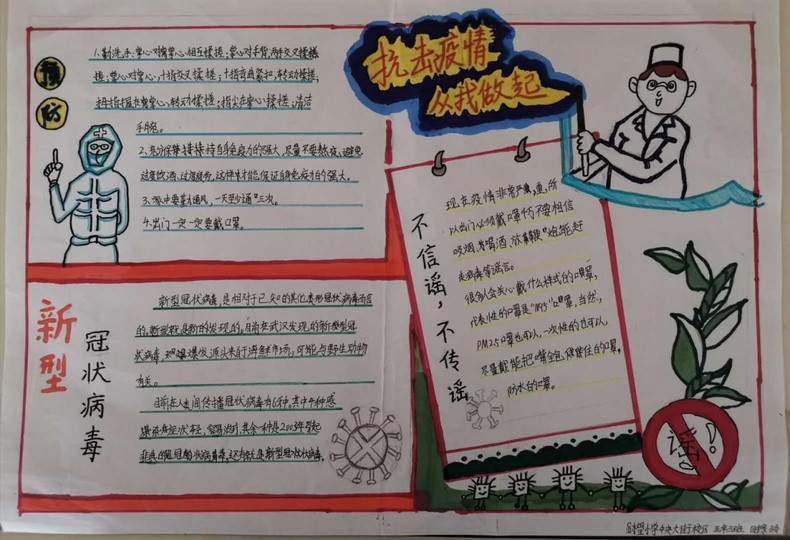 抗击疫情
从我做起
预防
1.勤洗手:掌心对掌心相互揉搓;掌心对手背,两手交叉揉搓
搓;掌心对掌心,十指交叉揉搓;十指弯曲紧扣,转动揉搓;
拇指握在掌心,转动揉搓;指尖在掌心揉搓;清洁
手腕。
2.劳逸保持自身免疫力的强大,尽量不要熬夜,避免
过度饮酒,过度疲劳,这样才能保证自身免疫力的强大。
3.家中要勤通风,一天至少通三次。
4.出门一定一定要戴口罩。
新型
冠状病毒
新型冠状病毒,是相对于已知的其他类形冠状病毒而言
的,新型就是新的发现的,目前在武汉发现的新型冠
状病毒,爆发源头来于海鲜市场,可能与野生动物
有关。
目前在人世间传播冠状病毒有6种,其中有4种感
染后症状轻,容易治疗,其余一种是2003年引起
不信谣,不传谣
现在疫情非常严重,所
以出门必须戴口罩,千万不要相信
吸烟,喝酒,放鞭炮能赶
走病毒等谣言。
很多人会关心戴什么样式的口罩,
代表性的口罩是"N95"口罩,当然,
PM2.5口罩也可以,一次性的也可以,
尽量戴能把口鼻全包住的口罩,
防水的口罩。
谣!